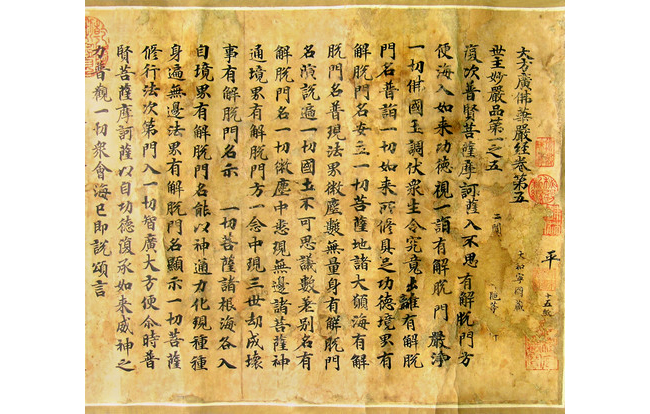 平
十五紙
大和寧國藏
大方廣佛華嚴経卷第五
世主妙嚴品第一之五
復次普賢菩薩摩訶薩入不思有解脫門方
便海入如来功德視一謂有解脫門 嚴淨
一切佛國土調伏衆生令究竟出離有解脫
門名普詣一切如来所修具足功德境界有
解脫門名安立一切菩薩地諸大願海有解
脫門名普現法界微塵數無量身有解脫門
名演說遍一切國土不可思議數差別名有
解脫門名一切微塵中悉現無邊諸菩薩神
通境界有解脫門方一念中現三世劫成壞
事有解脫門名示 一切菩薩諸根海各入
自境界有解脫門名能以神通力化現種種
身遍無邊法界有解脫門名顯示一切菩薩
修行法次第門入一切智廣大方便尒時普
賢菩薩摩訶薩以自功德復承如来威神之
力普觀一切衆會海已即説頌言